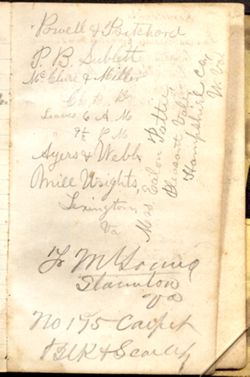 Powell & Pritchard
P. B. Sublett
McClure & Miller
C
Leaves 6 A M
P M
Ayers & Webb
Mill Wrights,
Lexington,
Va
Miss Ellen Patter
Pleasant Dale
Hampshire Co,
W. Va.
Young
Staunton
Va
No 175 Carpet
Blk & Scarlet